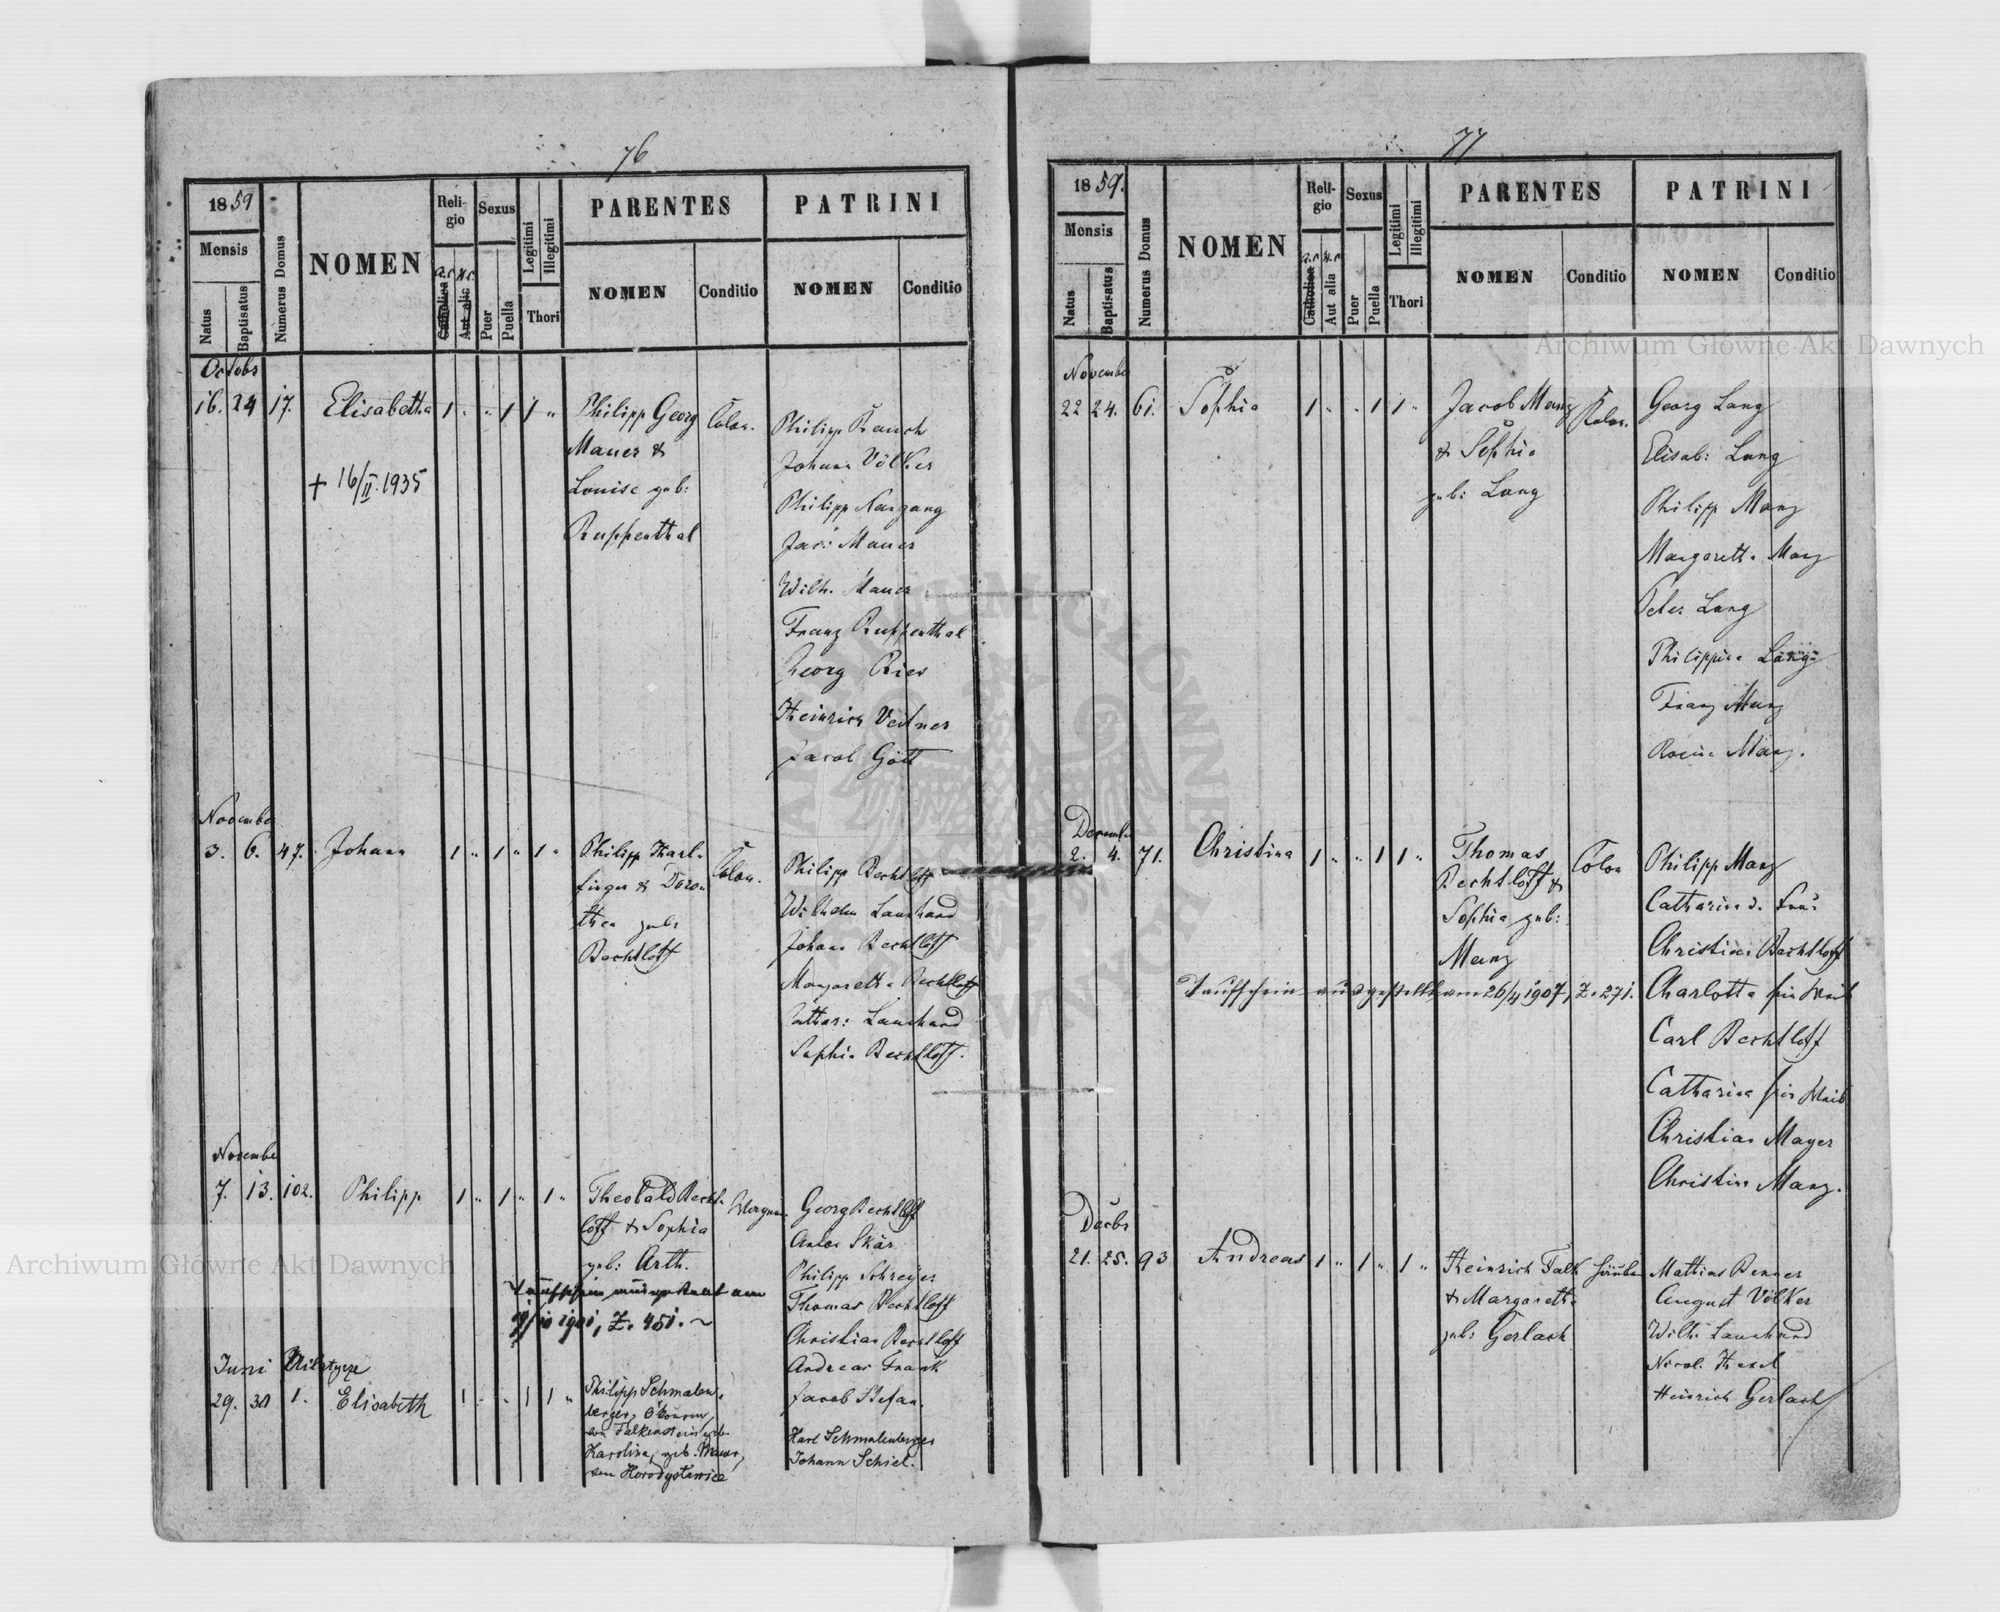 76
1859
Mensis
Natus
Baptisatus
Numerus Domus
NOMEN
Reli-
gio
a.c.
Catholica
Aut alia
Sexus
Puer
Puella
Legitimi
Illegitimi
Thori
PARENTES
NOMEN
Conditio
PATRINI
NOMEN
Conditio
Octobr
16. 24 17. Elisabetha 1 " " 1 1 "
+ 16/II. 1935
Philipp Georg
Mauer &
Louise geb:
Ruppenthal
Colon.
Philipp Rauch
Johann Völker
Philipp Nargang
Jac: Mauer
Wilh. Mauer
Franz Ruppenthal
Georg Ries
Heinrich Veitner
Jacob Gött
November
3. 6. 47. Johann 1 " 1 " 1 "
Philipp Karl-
finger & Doro-
thea geb:
Bechtloff
Colon.
Philipp Bechtloff
Wilhelm Lanchard
Johann Bechtloff
Margaretha Bechtloff
Cathar: Lanchard
Sophia Bechtloff.
November
7. 13. 102. Philipp 1 " 1 " 1 "
Theobald Becht-
loff & Sophia
geb: Arth.
Wagner
Taufschein ausgestellt am
1901, Z. 451.
Georg Bechtloff
Anton Skar
Philipp Schreyer
Thomas Bechtloff
Christian Bechtloff
Andreas Frank
Jacob Stefan.
Juni
29. 30 1. Elisabeth 1 - - 1 1 "
Philipp Schmalen-
berger, Ökonom
von Falkenstein und
Karolina, geb. Mauer,
von Horodyslawice
Karl Schmalenberger
Johann Schiel.
77
1859.
Mensis
Natus
Baptisatus
Numerus Domus
NOMEN
Reli-
gio
a.c.
Catholica
Aut alia
Sexus
Puer
Puella
Legitimi
Illegitimi
Thori
PARENTES
NOMEN
Conditio
PATRINI
NOMEN
Conditio
November
22 24. 61. Sophia 1 " " 1 1 "
Jacob Manz
& Sophia
geb: Lang
Colon.
Georg Lang
Elisab: Lang
Philipp Manz
Margaretha Manz
Peter Lang
Philippina Lang
Franz Manz
Rosina Manz.
December
2. 4. 71. Christina 1 " " 1 1 "
Thomas
Bechtloff &
Sophia geb:
Manz
Colon
Taufschein ausgestellt am 26/4 1907, Z. 271.
Philipp Manz
Catharina d. Frau
Christian Bechtloff
Charlotta sein Weib
Carl Bechtloff
Catharina sein Weib
Christian Mayer
Christina Manz.
Decbr
21. 25. 93 Andreas 1 " 1 " 1 "
Heinrich Falk
& Margaretha
geb: Gerlach
Mathias Benner
August Völker
Wilh. Lanchard
Nicol. Hexel
Heinrich Gerlach
Archiwum Główne Akt Dawnych
Archiwum Główne Akt Dawnych